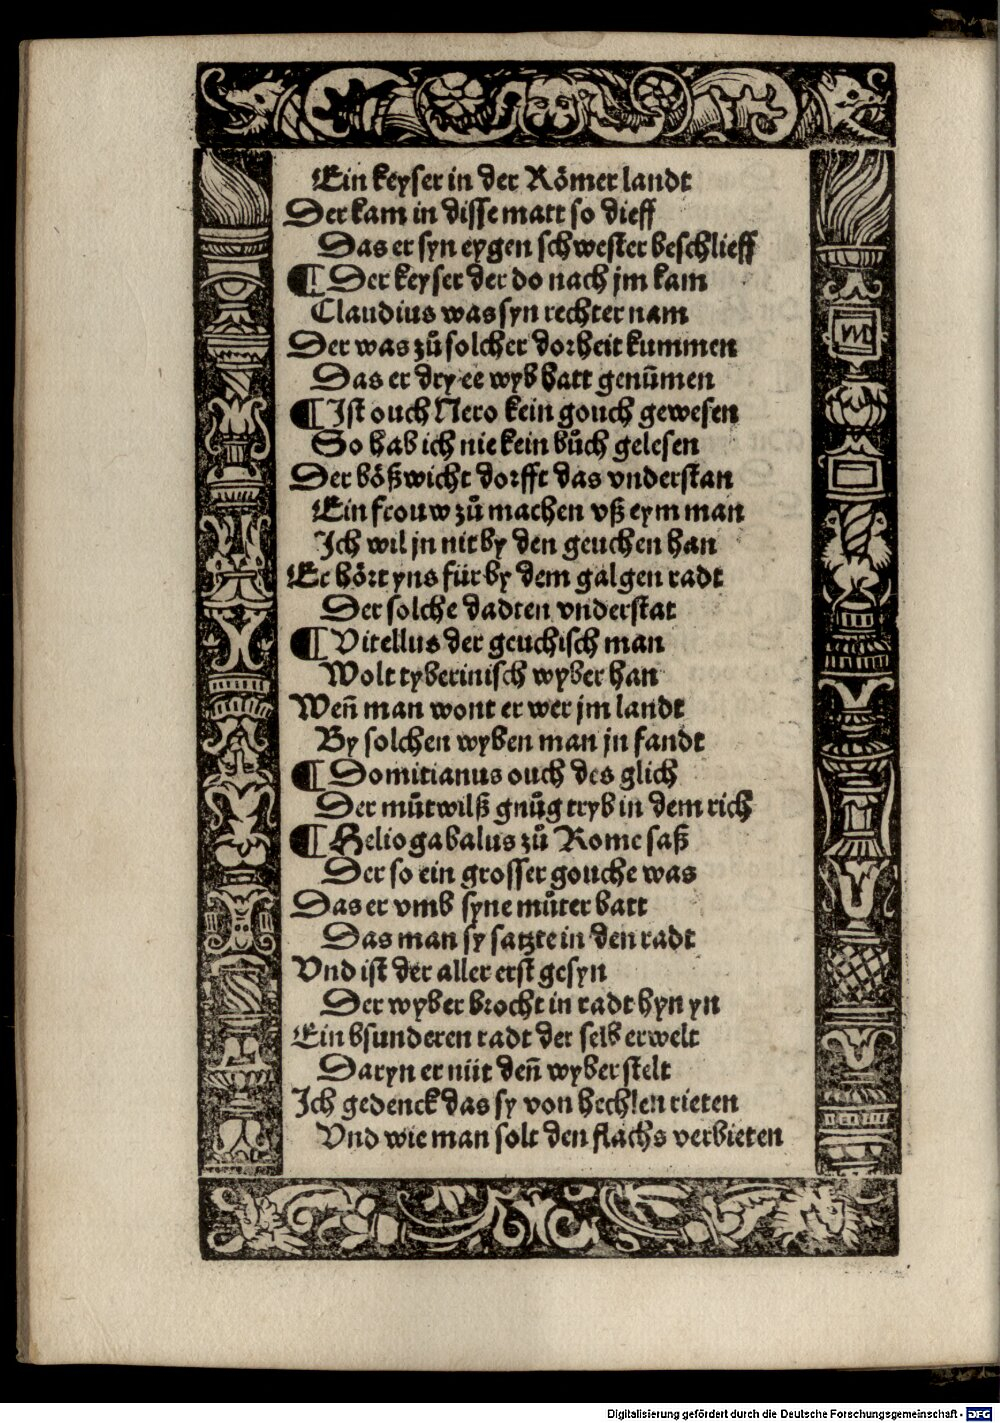 Ein keyser in der Römer landt
Der kam in disse matt so dieff
Das er syn eygen schwester beschlieff
¶ Der keyser der do nach jm kam
Claudius was syn rechter nam
Der was zů solcher dorheit kummen
Das er dry ee wyb hatt genūmen
¶ Ist ouch Nero kein gouch gewesen
So hab ich nie kein bůch gelesen
Der bößwicht dorfft das vnderstan
Ein frouw zů machen vß eym man
Ich wil jn nit by den geuchen han
Er hört yns für by dem galgen radt
Der solche dadten vnderstat
¶ Vitellus der geuchisch man
Wolt tyberinisch wyber han
Weñ man wont er wer jm landt
By solchen wyben man jn fandt
¶ Domitianus ouch des glich
Der můtwilß gnůg tryb in dem rich
¶ Heliogabalus zů Rome saß
Der so ein grosser gouche was
Das er vmb syne můter batt
Das man sy satzte in den radt
Vnd ist der aller erst gesyn
Der wyber brocht in radt hyn yn
Ein bsunderen radt der selb erwelt
Daryn er nüt deñ wyber stelt
Ich gedenck das sy von hechlen rieten
Vnd wie man solt den flachs verbieten
Digitalisierung gefördert durch die Deutsche Forschungsgemeinschaft - DFG